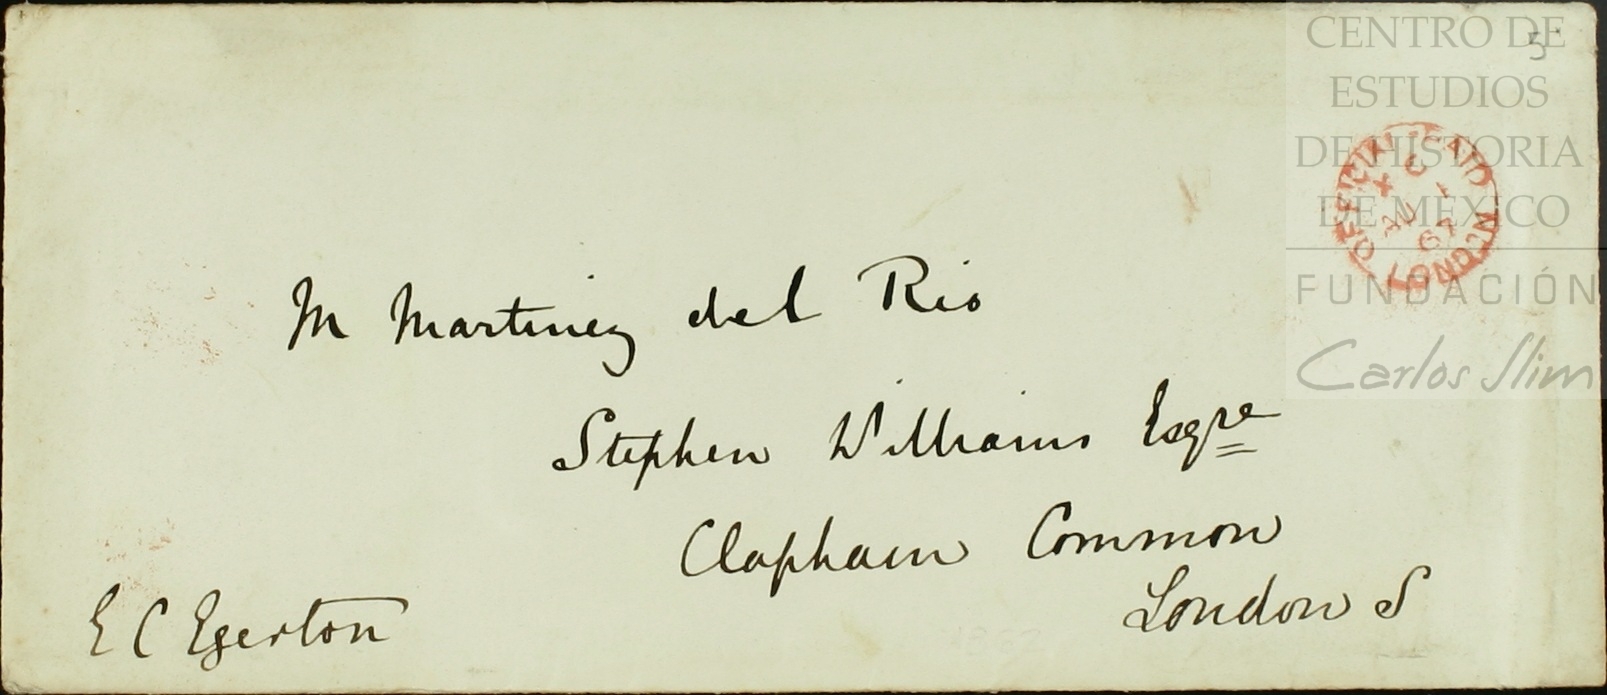 CENTRO DE
ESTUDIOS
DE HISTORIA
DE MÉXICO
FUNDACIÓN
Carlos Slim
5
OFFICIAL PAID
X C
AU 1
67
LONDON
M Martinez del Rio
Stephen Williams Esqre
Clapham Common
London S
E C Egerton